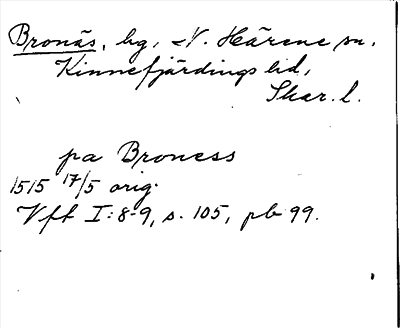 Bronäs, hg, N. Härene sn.
Kinnefjärdings hd,
Skar. l.
pa Broness
1515 17/5 orig.
Vft I:8-9, s. 105, pb 99.